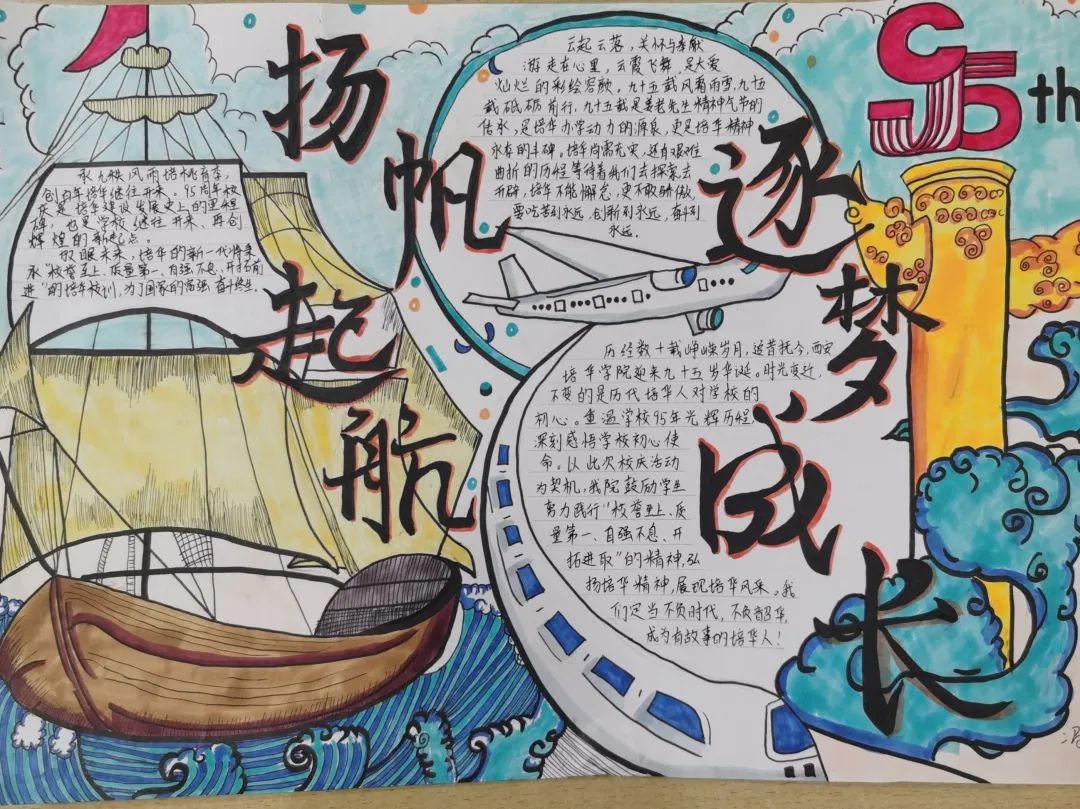 扬帆起航
逐梦成长
95th
承九秩风雨培桃育李,
创百年培华继往开来。95周年校
庆是培华建设发展史上的里程
碑,也是学校继往开来、再创
辉煌的新起点。
放眼未来,培华的新一代将秉
承"校誉至上、质量第一、自强不息、开拓前
进"的培华校训,为了国家的富强奋斗终生。
云起云落,关怀与奉献
游走在心里,云霞飞舞,是大爱
灿烂的彩绘容颜。九十五载风霜雨雪,九十五
载砥砺前行,九十五载是姜老先生精神气节的
传承,是培华办学动力的源泉,更是培华精神
永存的丰碑。培华尚需充实,还有艰难
曲折的历程等待着我们去探索去
开辟,培华不能懈怠,更不敢骄傲,
要吃苦到永远,创新到永远,奋斗到
永远。
历经数十载峥嵘岁月,追昔抚今,西安
培华学院迎来九十五岁华诞。时光变迁,
不变的是历代培华人对学校的
初心。重温学校95年光辉历程,
深刻感悟学校初心使
命。以此次校庆活动
为契机,我院鼓励学生
努力践行"校誉至上、质
量第一、自强不息、开
拓进取"的精神,弘
扬培华精神,展现培华风采。我
们定当不负时代,不负韶华,
成为有故事的培华人!